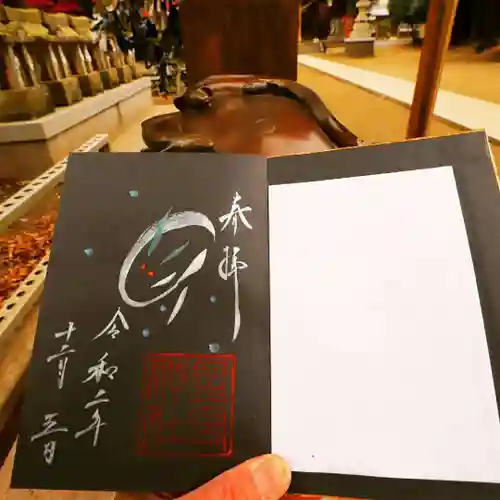 奉拝
令和二年
十二月 三日